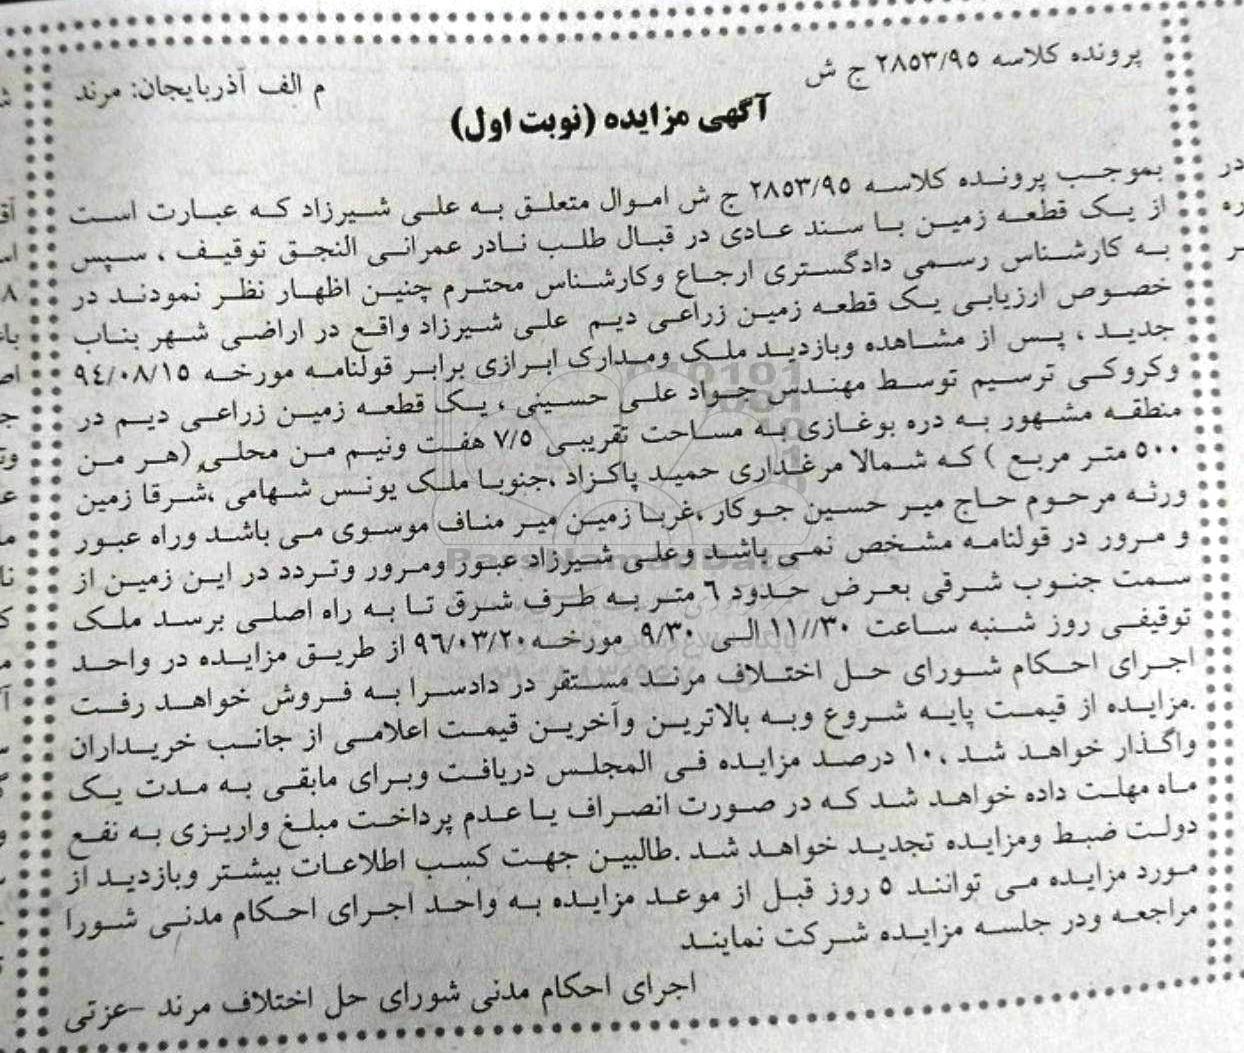 پرونده کلاسه ۲۸۵۳/۹۵ ج ش
م الف آذربایجان: مرند
آگهی مزایده (نوبت اول)
بموجب پرونده کلاسه ۲۸۵۳/۹۵ ج ش اموال متعلق به علی شیرزاد که عبارت است
از یک قطعه زمین با سند عادی در قبال طلب نادر عمرانی النجق توقیف ، سپس
به کارشناس رسمی دادگستری ارجاع وکارشناس محترم چنین اظهار نظر نمودند در
خصوص ارزیابی یک قطعه زمین زراعی دیم علی شیرزاد واقع در اراضی شهر بناب
جدید ، پس از مشاهده وبازدید ملک ومدارک ابرازی برابر قولنامه مورخه ۹٤/۰۸/۱۵
وکروکی ترسیم توسط مهندس جواد علی حسینی ، یک قطعه زمین زراعی دیم در
منطقه مشهور به دره بوغازی به مساحت تقریبی ۷/۵ هفت ونیم من محلی (هر من
۵۰۰ متر مربع ) که شمالا مرغداری حمید پاکزاد ،جنوبا ملک یونس شهامی ،شرقا زمین
ورثه مرحوم حاج میر حسین جوکار ،غربا زمین میر مناف موسوی می باشد وراه عبور
و مرور در قولنامه مشخص نمی باشد وعلی شیرزاد عبور ومرور وتردد در این زمین از
سمت جنوب شرقی بعرض حدود ٦ متر به طرف شرق تا به راه اصلی برسد ملک
توقیفی روز شنبه ساعت ۱۱//۳۰ الی ۹/۳۰ مورخه ۹٦/۰۳/۲۰ از طریق مزایده در واحد
اجرای احکام شورای حل اختلاف مرند مستقر در دادسرا به فروش خواهد رفت
.مزایده از قیمت پایه شروع وبه بالاترین وآخرین قیمت اعلامی از جانب خریداران
واگذار خواهد شد ،۱۰ درصد مزایده فی المجلس دریافت وبرای مابقی به مدت یک
ماه مهلت داده خواهد شد که در صورت انصراف یا عدم پرداخت مبلغ واریزی به نفع
دولت ضبط ومزایده تجدید خواهد شد .طالبین جهت کسب اطلاعات بیشتر وبازدید از
مورد مزایده می توانند ۵ روز قبل از موعد مزایده به واحد اجرای احکام مدنی شورا
مراجعه ودر جلسه مزایده شرکت نمایند
اجرای احکام مدنی شورای حل اختلاف مرند –عزتی